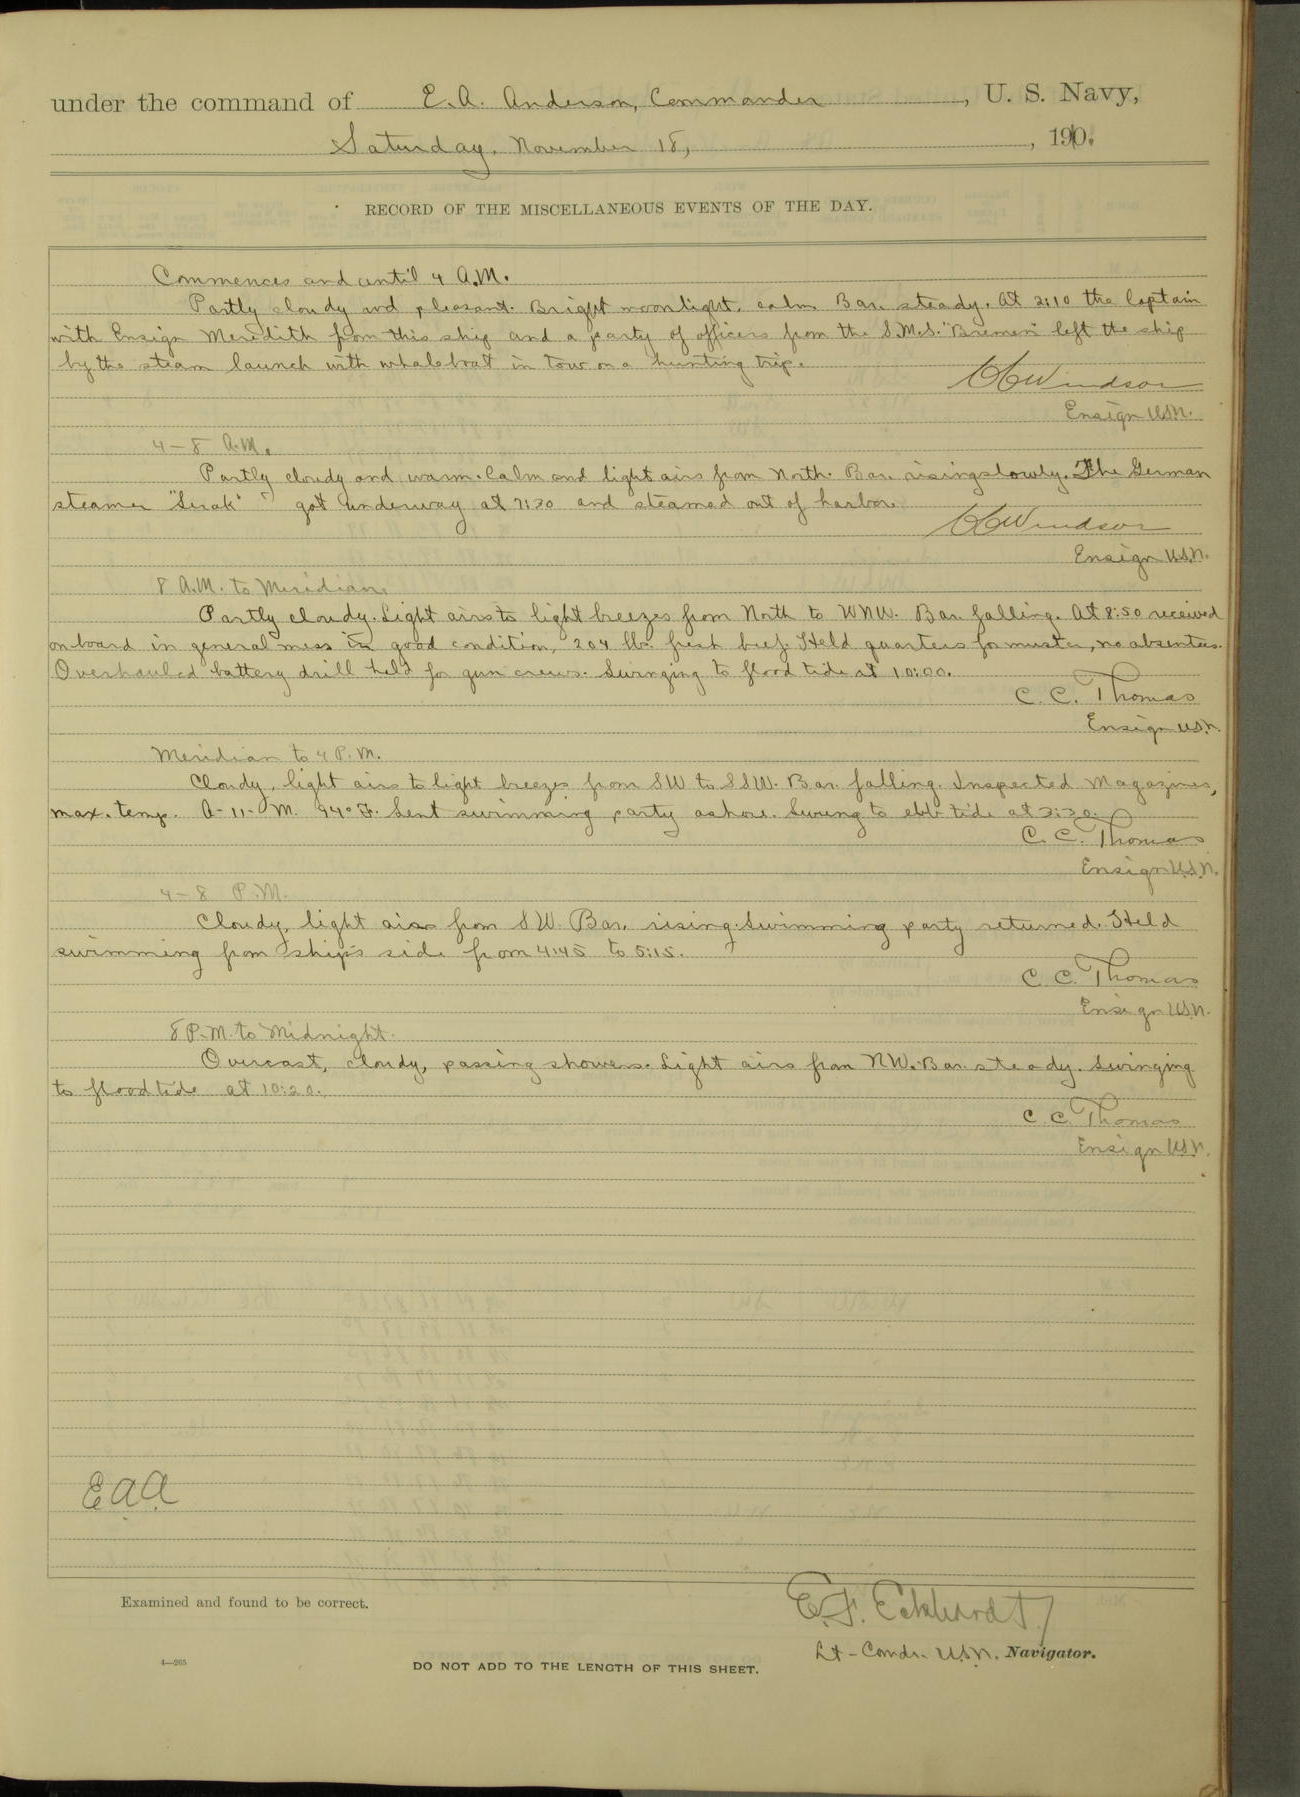 under the command of E. A. Anderson, Commander, U. S. Navy,
Saturday, November 18, 1910.
RECORD OF THE MISCELLANEOUS EVENTS OF THE DAY.
Commences and until 4 A.M.
Partly cloudy and pleasant. Bright moonlight, calm Bar. steady. At 2:10 the Captain
with Ensign Meredith from this ship and a party of officers from the S.M.S. "Bremen" left the ship
by the steam launch with whaleboat in tow on a hunting trip.
Windsor
Ensign U.S.N.
4-8 A.M.
Partly cloudy and warm. Calm and light airs from North. Bar. rising slowly. The German
steamer got underway at 7:30 and steamed out of harbor.
Windsor
Ensign U.S.N.
8 A.M. to Meridian.
Partly cloudy. Light airs to light breezes from North to WNW. Bar. falling. At 8:50 received
onboard in general mess in good condition, 204 lbs. fresh beef. Held quarters for muster, no absentees.
Overhauled battery drill held for gun crews. Swinging to flood tide at 10:00.
C. C. Thomas
Ensign U.S.N.
Meridian to 4 P.M.
Cloudy, light airs to light breezes from SW to SSW. Bar. falling. Inspected Magazines,
max. temp. A-11-M. 94° F. Sent swimming party ashore. Swung to ebb tide at 3:30.
C. C. Thomas
Ensign U.S.N.
4-8 P.M.
Cloudy, light airs from SW. Bar. rising. Swimming party returned. Held
swimming from ship's side from 4:45 to 5:15.
C. C. Thomas
Ensign U.S.N.
8 P.M. to Midnight.
Overcast, cloudy, passing showers. Light airs from NW. Bar. steady. Swinging
to flood tide at 10:20.
C. C. Thomas
Ensign U.S.N.
E.A.A.
Examined and found to be correct.
E. F. Eckhardt
Lt-Comdr. U.S.N. Navigator.
4—265
DO NOT ADD TO THE LENGTH OF THIS SHEET.